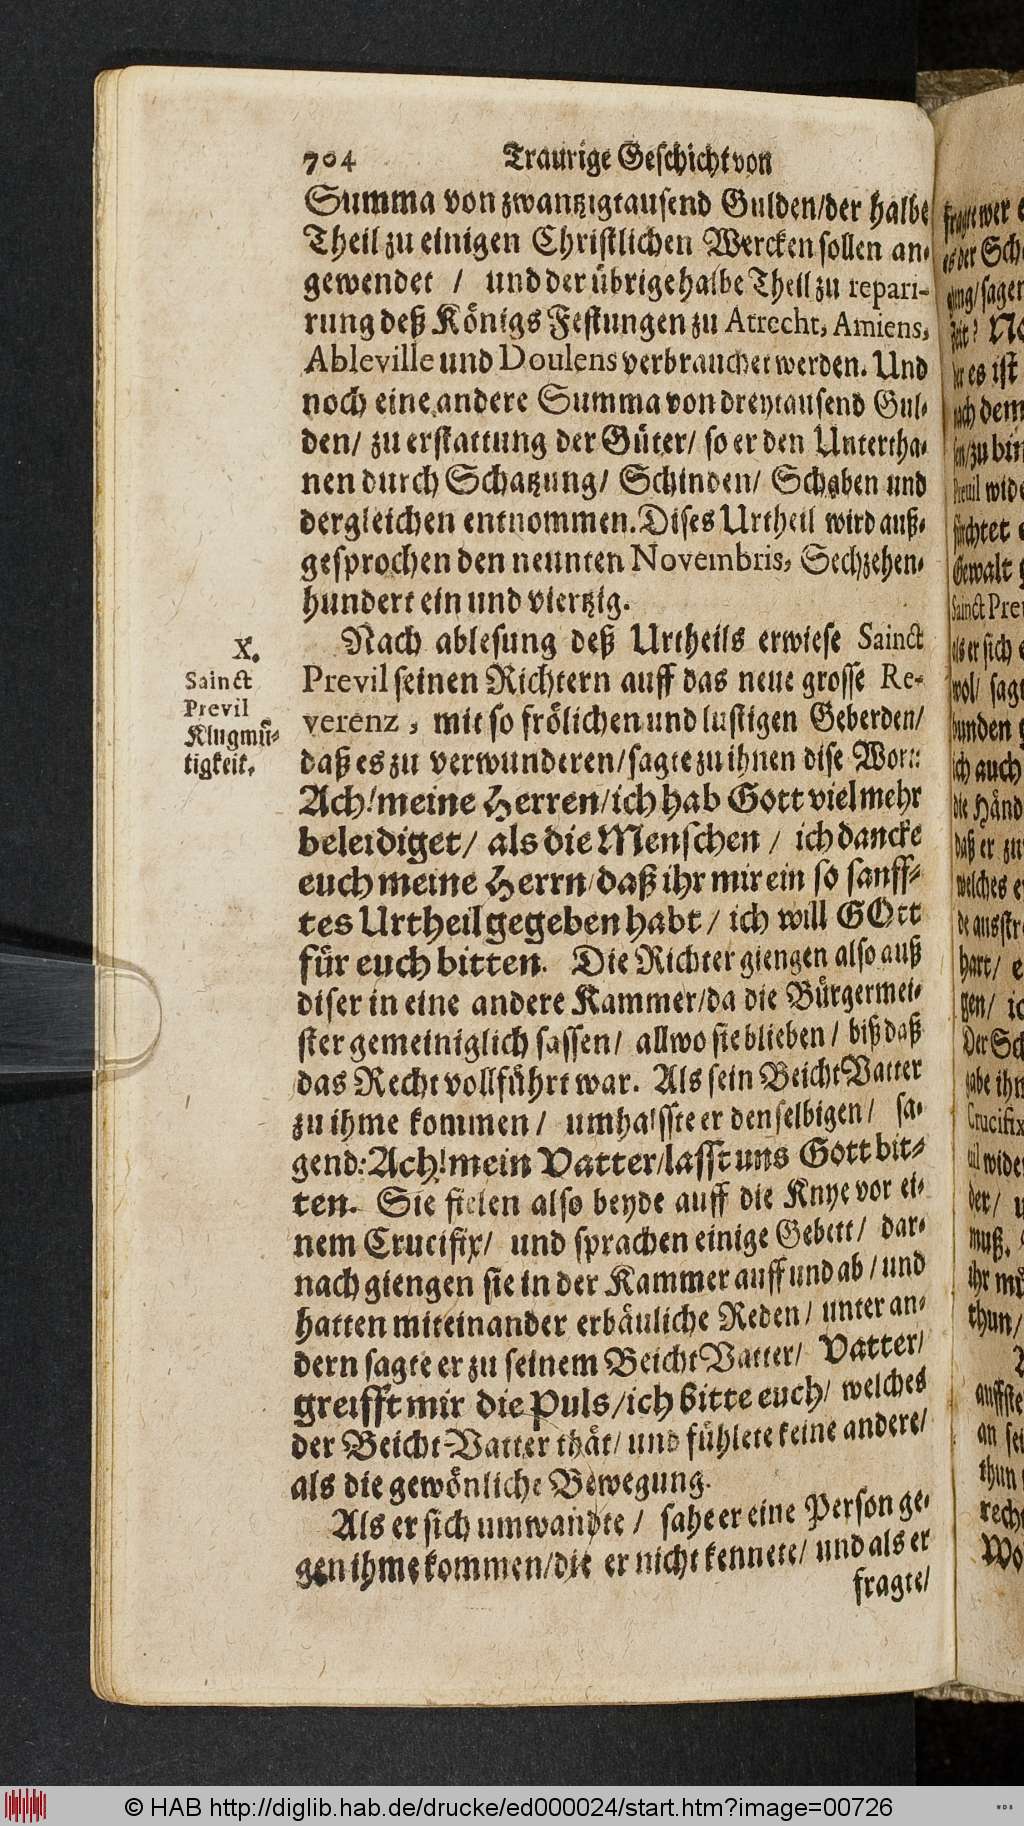 704 Traurige Geschicht von
Summa von zwantzigtausend Gulden/der halbe
Theil zu einigen Christlichen Wercken sollen an-
gewendet / und der übrige halbe Theil zu repari-
rung deß Königs Festungen zu Atrecht, Amiens,
Ableville und Doulens verbrauchet werden. Und
noch eine andere Summa von dreytausend Gul-
den/ zu erstattung der Güter/ so er den Untertha-
nen durch Schatzung/ Schinden/ Schaben und
dergleichen entnommen. Dises Urtheil wird auß-
gesprochen den neunten Novembris, Sechzehen-
hundert ein und viertzig.
X.
Sainct
Previl
Klugmü-
tigkeit.
Nach ablesung deß Urtheils erwiese Sainct
Previl seinen Richtern auff das neue grosse Re-
verenz, mit so frölichen und lustigen Geberden/
daß es zu verwunderen/sagte zu ihnen dise Wort:
Ach! meine Herren/ich hab Gott viel mehr
beleidiget/ als die Menschen / ich dancke
euch meine Herrn/daß ihr mir ein so sanff-
tes Urtheil gegeben habt/ ich will GOtt
für euch bitten. Die Richter giengen also auß
diser in eine andere Kammer/da die Bürgermei-
ster gemeiniglich sassen/ allwo sie blieben/ biß daß
das Recht vollführt war. Als sein Beicht Vatter
zu ihme kommen/ umhalsste er denselbigen/ sa-
gend: Ach! mein Vatter/lasst uns Gott bit-
ten. Sie fielen also beyde auff die Knye vor ei-
nem Crucifix/ und sprachen einige Gebett/ dar-
nach giengen sie in der Kammer auff und ab/und
hatten miteinander erbäuliche Reden/ unter an-
dern sagte er zu seinem Beicht Vatter/ Vatter/
greifft mir die Puls/ich bitte euch/ welches
der Beicht-Vatter thät/ und fühlete keine andere/
als die gewönliche Bewegung.
Als er sich umwandte/ sahe er eine Person ge-
gen ihme kommen/die er nicht kennete/ und als er
fragte/
© HAB http://diglib.hab.de/drucke/ed000024/start.htm?image=00726